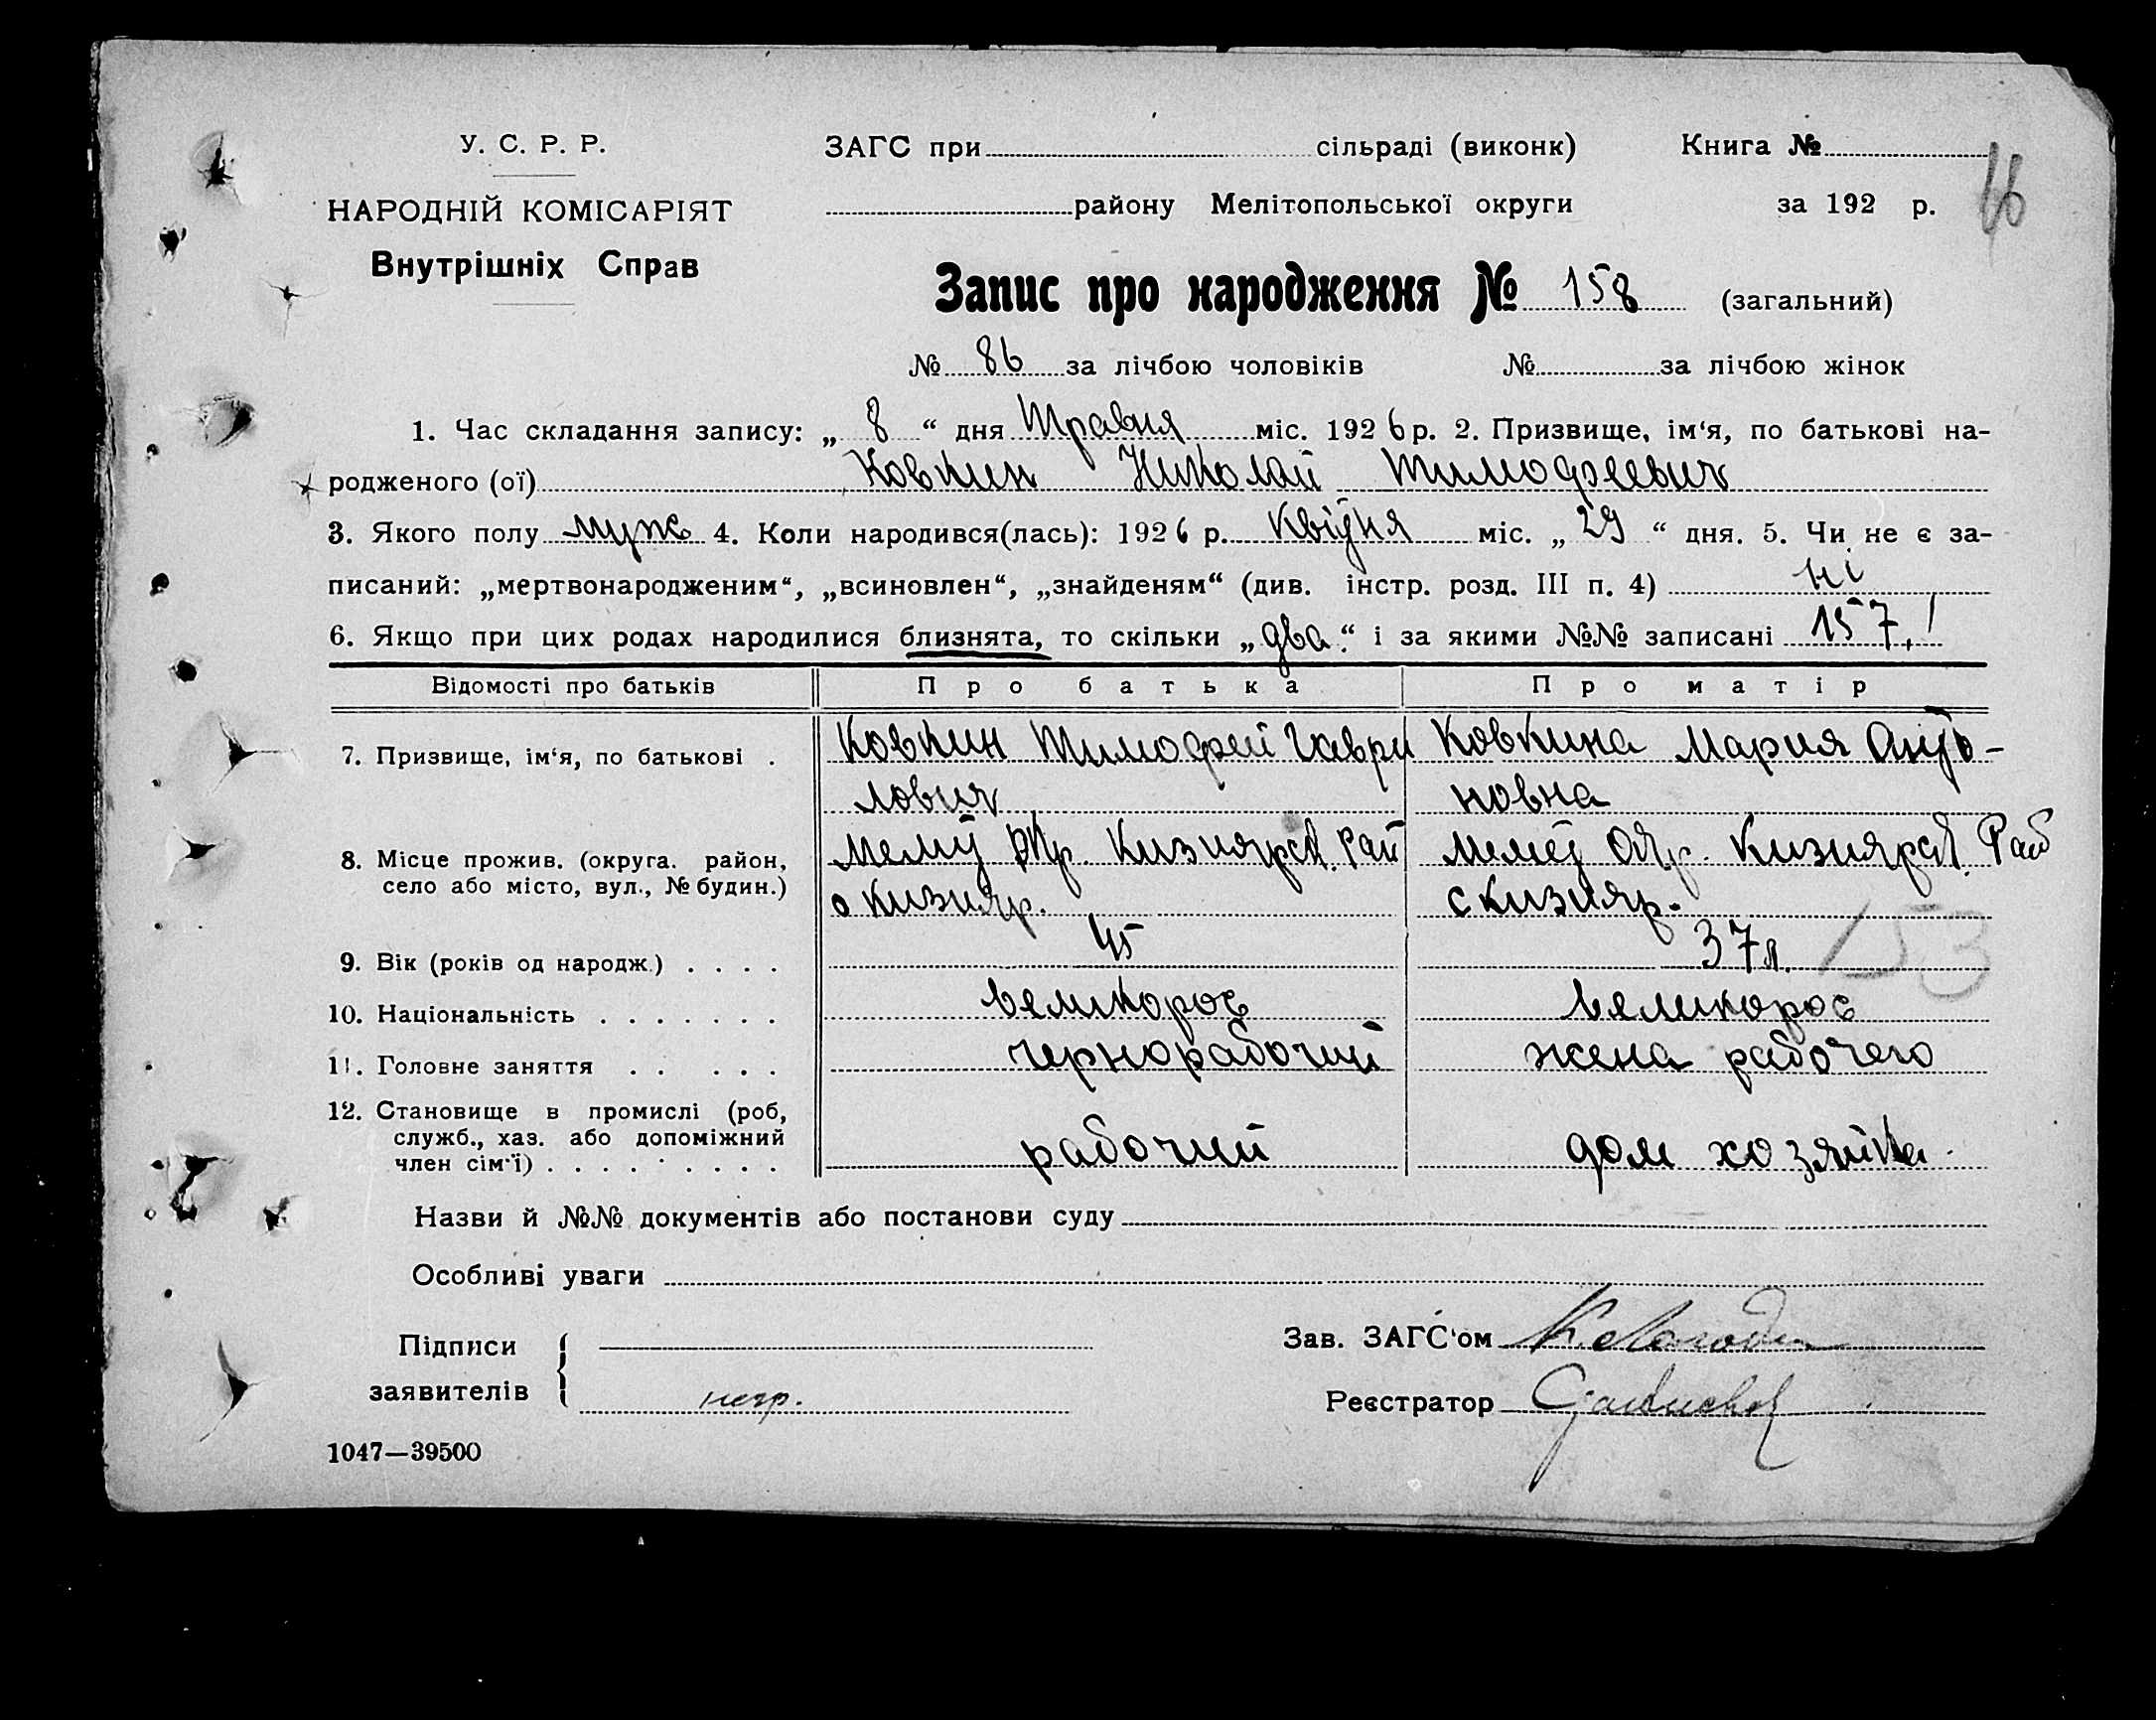 У. С. Р. Р.
НАРОДНІЙ КОМІСАРІЯТ
Внутрішніх Справ
ЗАГС при сільраді (виконк) Книга №
району Мелітопольської округи за 192 р.
Запис про народження № 158 (загальний)
№ 86 за лічбою чоловіків № за лічбою жінок
1. Час складання запису: „ 8 “ дня Травня міс. 1926 р. 2. Призвище, ім‘я, по батькові на-
родженого (ої) Ковкин Николай Тимофеевич
3. Якого полу муж 4. Коли народився(лась): 1926 р. Квітня міс. „ 29 “ дня. 5. Чи не є за-
писаний: „мертвонародженим“, „всиновлен“, „знайденям“ (див. інстр. розд. III п. 4) ні
6. Якщо при цих родах народилися близнята, то скільки „два“ і за якими №№ записані 157,
Відомості про батьків Про батька Про матір
7. Призвище, ім‘я, по батькові . Ковкин Тимофей Гаври Ковкина Мария Анто-
лович новна
8. Місце прожив. (округа. район, Мелит Окр. Кизиярск. Рай Мелит Окр. Кизиярск. Рай
село або місто, вул., № будин.) с Кизияр. с Кизияр.
9. Вік (років од народж.) . . . . 45 37 л. 153
10. Національність . . . . . . . великорос великорос
11. Головне заняття . . . . . чернорабочий жена рабочего
12. Становище в промислі (роб,
служб., хаз. або допоміжний
член сім‘ї) . . . . . . . . . рабочий дом хозяйка
Назви й №№ документів або постанови суду
Особливі уваги
Підписи
заявителів негр.
Зав. ЗАГС‘ом
Реєстратор
1047—39500